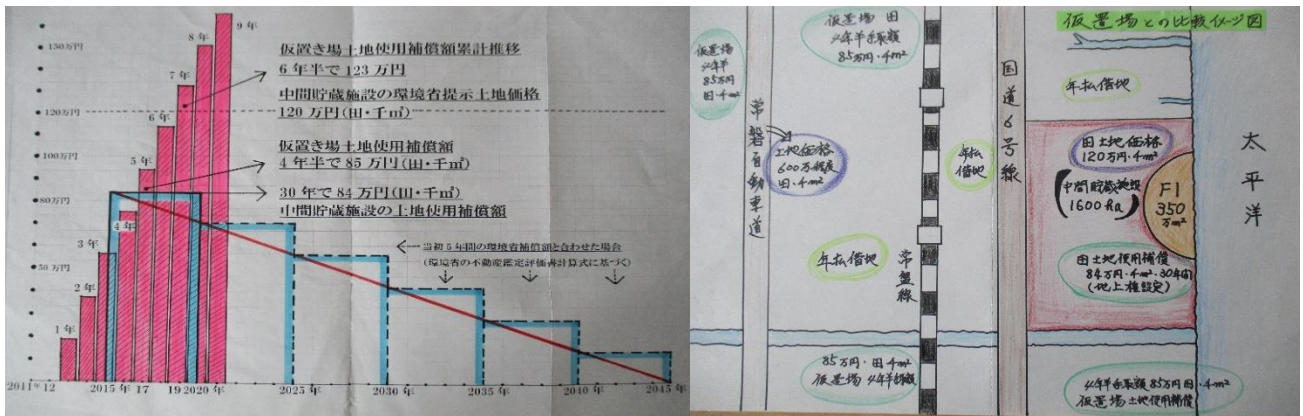 150万円
120万円
100万円
80万円
50万円
1年
2年
3年
4年
5年
6年
7年
8年
9年
仮置き場土地使用補償額累計推移
6年半で123万円
中間貯蔵施設の環境省提示土地価格
120万円(田・千㎡)
仮置き場土地使用補償額
4年半で85万円(田・千㎡)
30年で84万円(田・千㎡)
中間貯蔵施設の土地使用補償額
当初5年間の環境省補償額と合わせた場合
(環境省の不動産鑑定評価書計算式に基づく)
2011年12
2015年
17
19
2020年
2025年
2030年
2035年
2040年
2045年
仮置場との比較イメージ図
仮置場
4年半
85万円
田・千m²
仮置場 田
4年半受取額
85万円・千m²
常磐自動車道
土地価格
600万程度
田・千m²
年払借地
年払
借地
常盤線
国道6号線
年払借地
田土地価格
120万円・千m²
中間貯蔵施設
1600ha
F1
350
万m²
田土地使用補償
84万円・千m²・30年間
(地上権設定)
太平洋
85万円・田・千m²
仮置場 4年半受取額
4年半受取額85万円田・千m²
仮置場土地使用補償